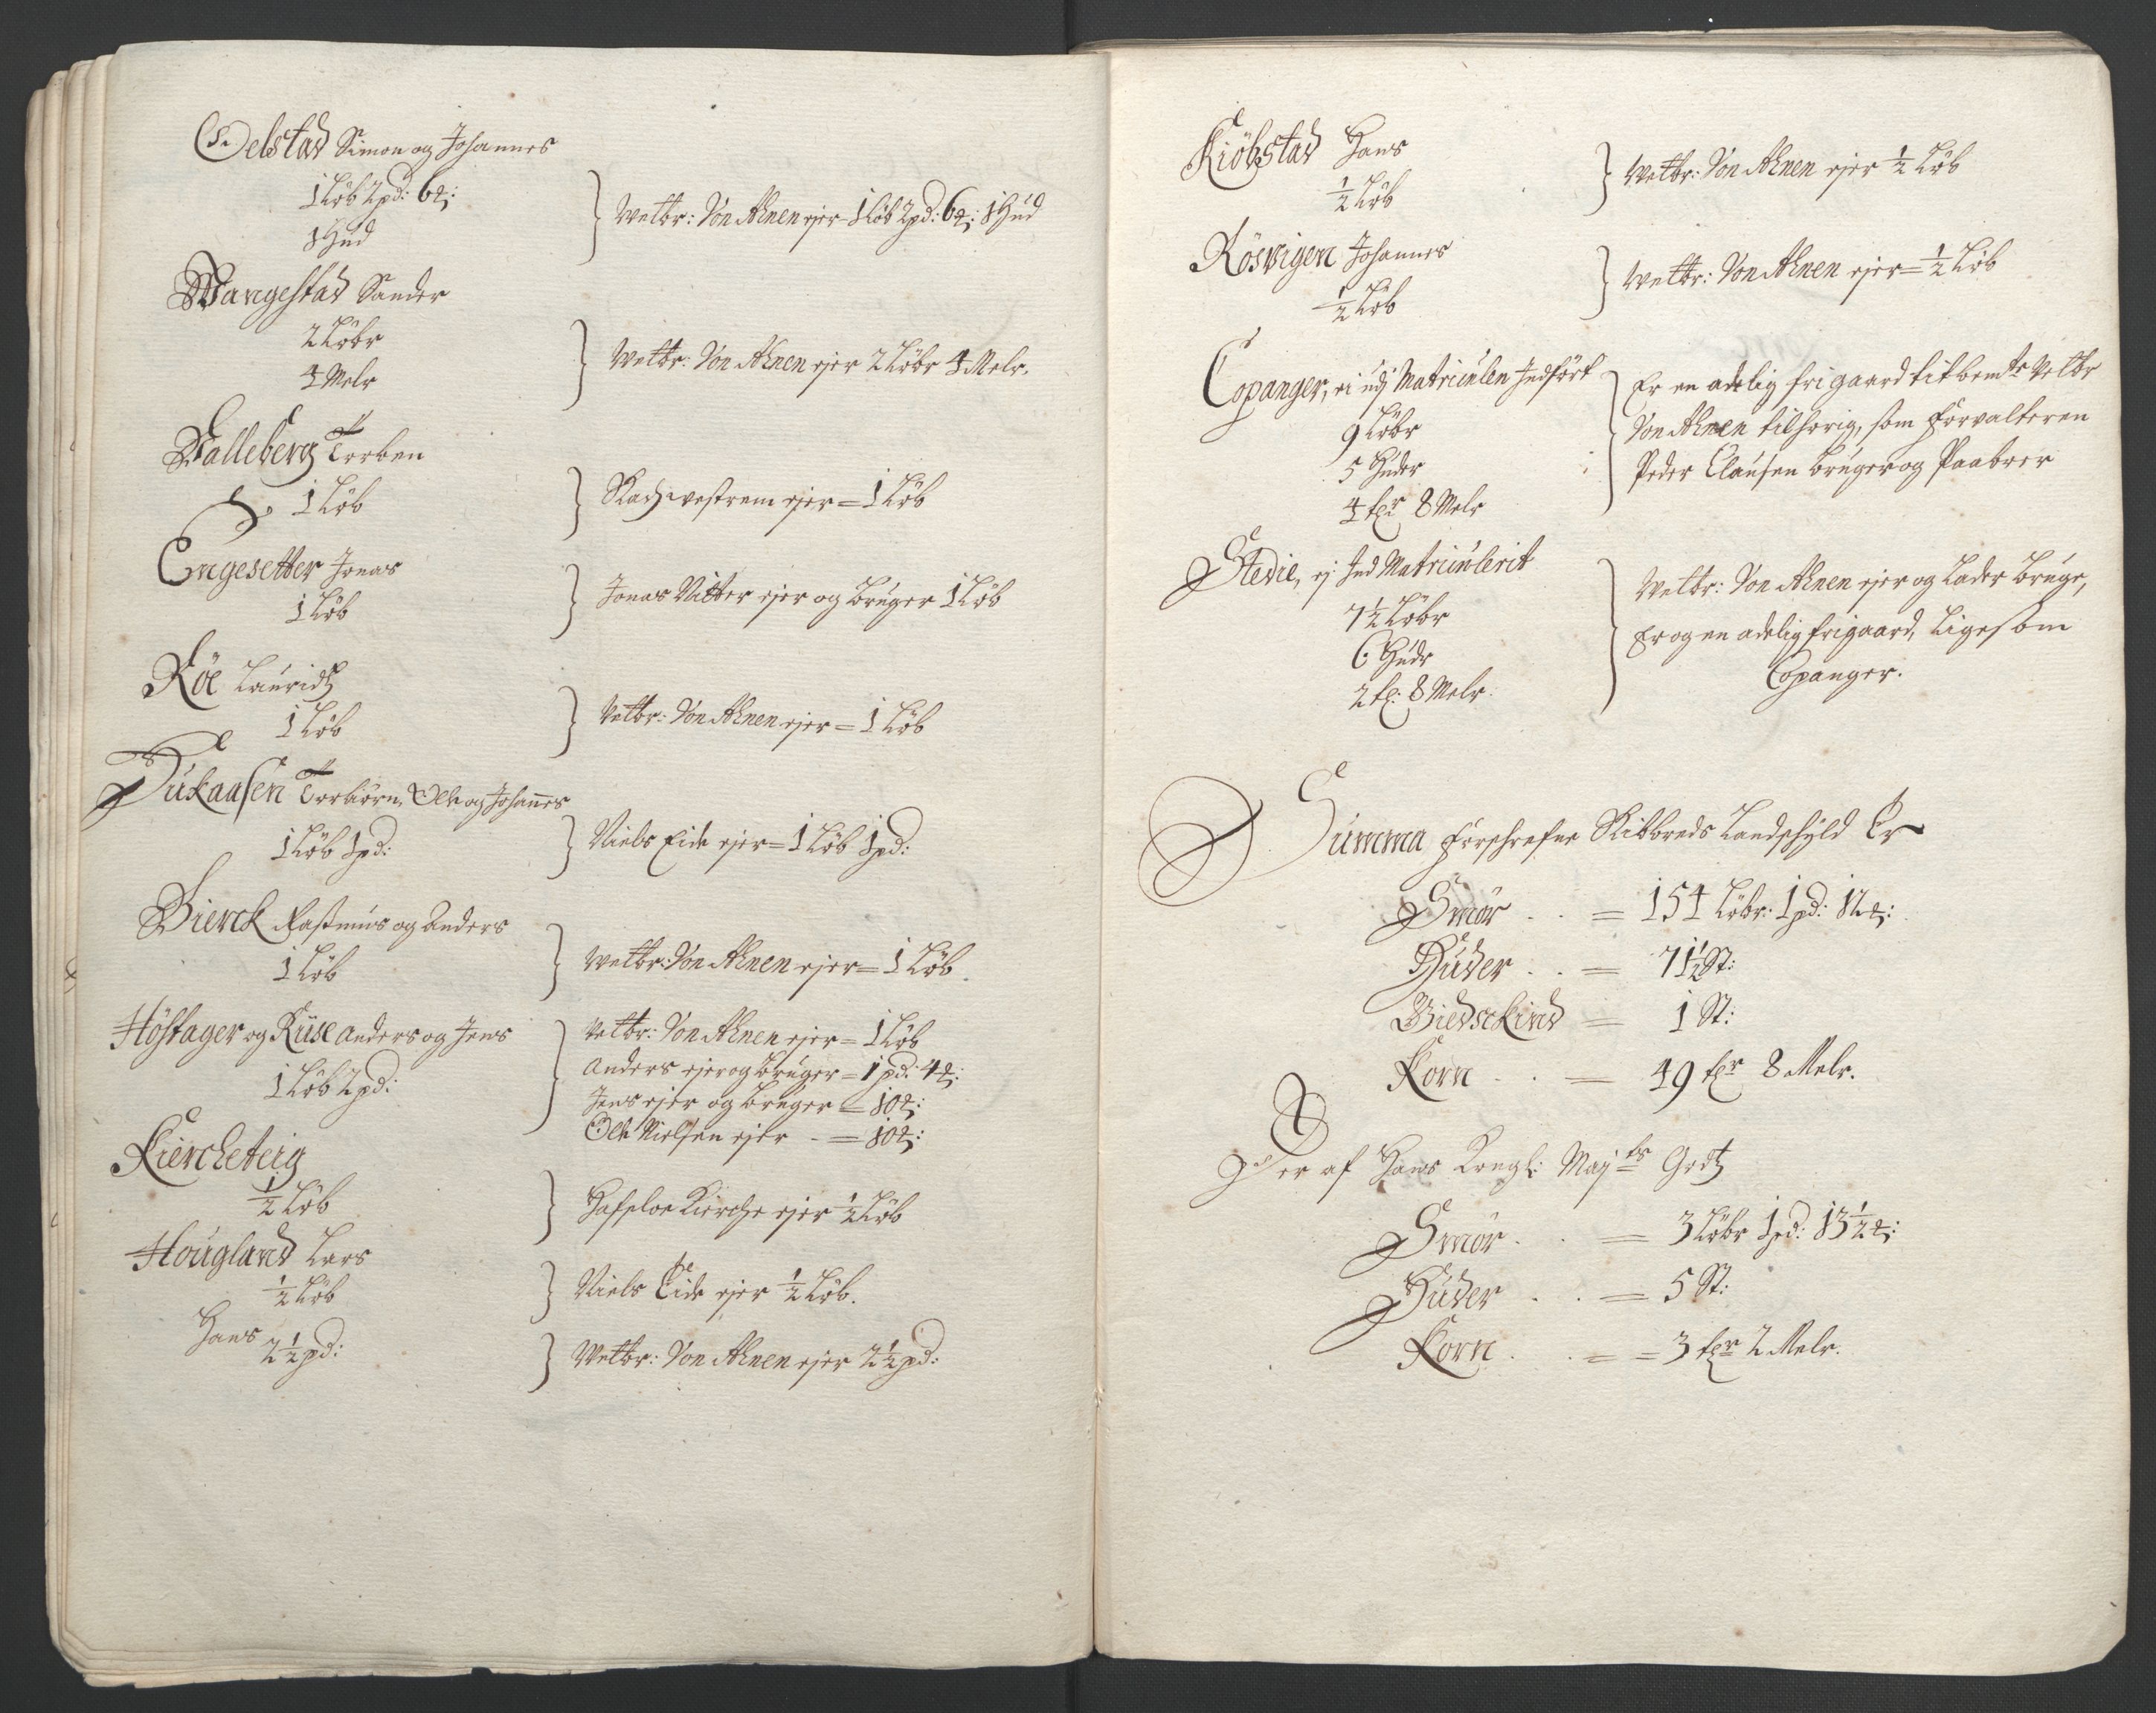 Oelstad Simon og Johannes
1 Løb 2 pd: 6 ℔:
1 Hud
Welbr: Von Ahnen ejer 1 Løb 2 pd: 6 ℔: 1 Hud
Wangestad Sander
2 Løbr
4 Melr
Welbr: Von Ahnen ejer 2 Løbr 4 Melr.
Falleberg Torben
1 Løb
ejer = 1 Løb
Engesetter Jonas
1 Løb
Jonas Nitter ejer og bruger 1 Løb
Röe Lauridtz
1 Løb
Velbr: Von Ahnen ejer = 1 Løb
Dukaasen Torbiörn, Ole og Johañes
1 Løb 1 pd:
Niels Eide ejer = 1 Løb 1 pd:
Bierck Rasmus og Anders
1 Løb
Welbr: Von Ahnen ejer = 1 Løb.
Höstager og Kuse Anders og Jens
1 Løb 2 pd:
Velbr: Von Ahnen ejer = 1 Løb
Anders ejer og bruger = 1 pd: 4 ℔:
Jens ejer og bruger = 10 ℔:
Ole Nielsen ejer - = 10 ℔:
Kiercheteig
½ Løb
Hafsloe Kierche ejer ½ Løb
Hougland Lars
½ Løb
Niels Eide ejer ½ Løb.
Hans
2½ pd:
Welbr: Von Ahnen ejer 2½ pd:
Kiöbstad Hans
½ Løb
Welbr: Von Ahnen ejer ½ Løb
Rösvigen Johannes
½ Løb
Welbr: Von Ahnen ejer = ½ Løb
Copanger, ei udj Matriculen Indfört
9 Løbr
5 Huder
4 tñr 8 Melr
Er en adelig frigaard titbemte Velbr
Von Ahnen tilhørig, som forvalteren
Peder Clausen bruger og Paaboer
Stedie, ej Ind Matriculerit
7½ Løbr
6 Hudr
2 tñ: 8 Melr.
Velbr: Von Ahnen ejer og lader bruge,
Er og en adelig frigaard, ligesom
Copanger.
Summa forschrefne Skibreds Landschyld Er
Smör . . = 154 Løbr: 1 pd: 12 ℔:
Huder . . = 71½ St:
Biedsckind = 1 St:
Korn - . = 49 tñr 8 Melr.
Der af Hans Kongl: Maj:ts Godtz
Smör . . = 3 Løbr 1 pd: 13½ ℔:
Huder . . = 5 St:
Korn . . = = 3 tñr 2 Melr.